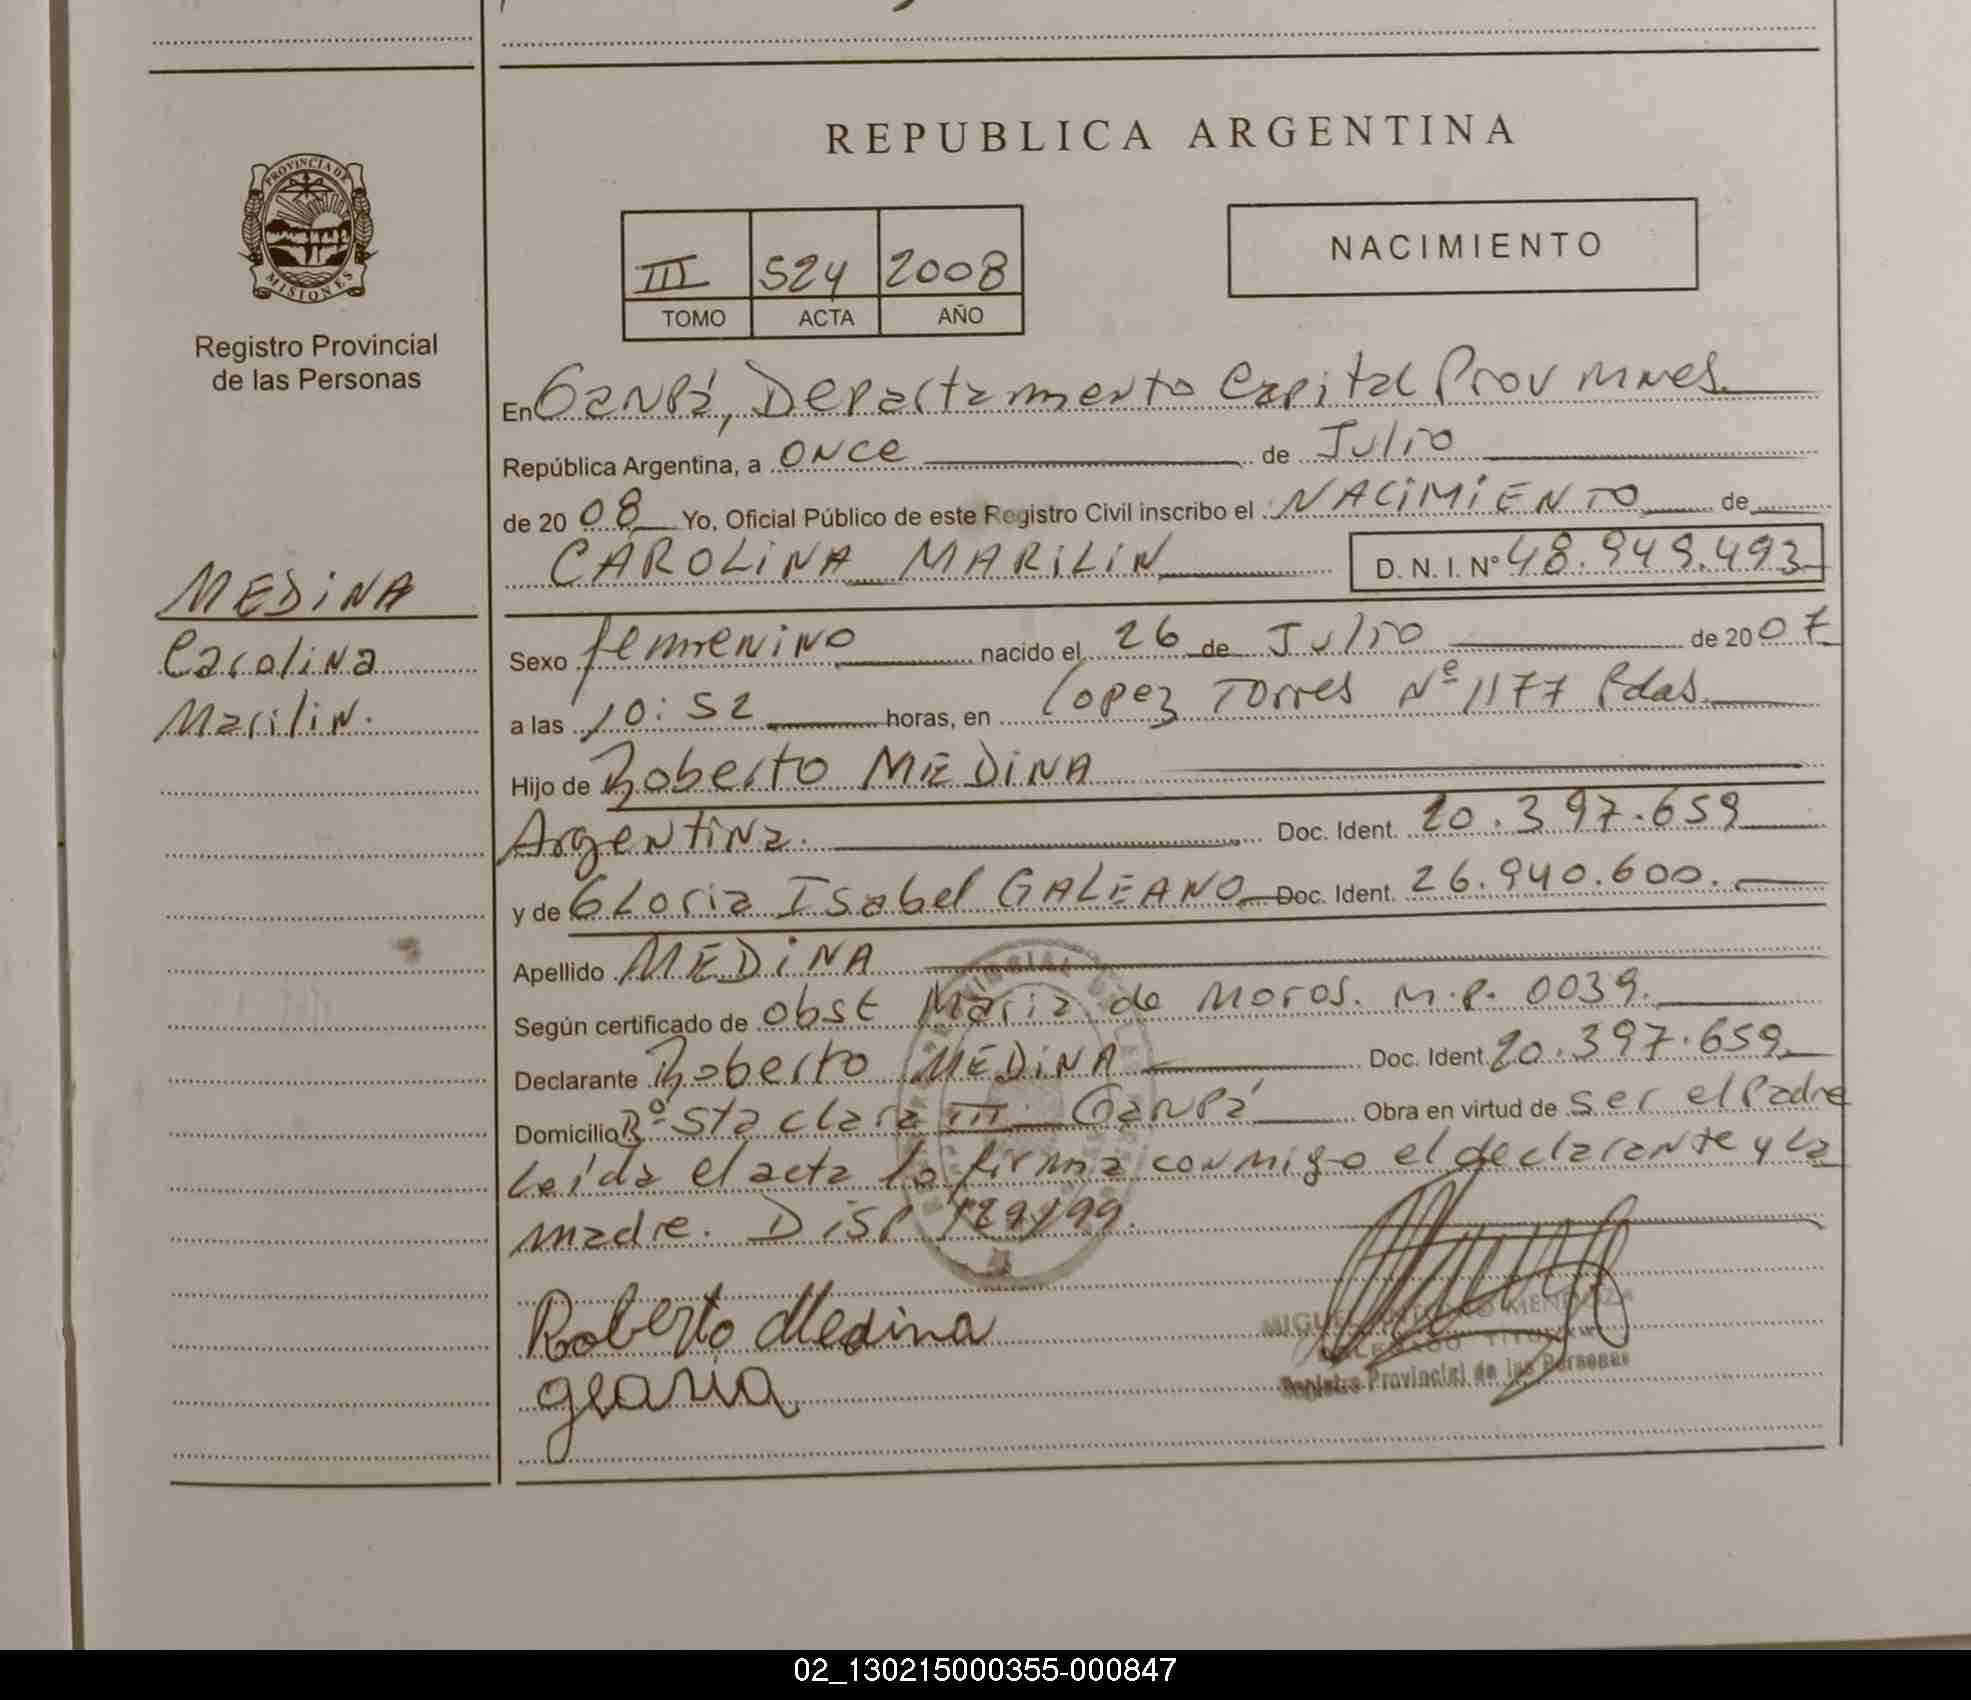 REPUBLICA ARGENTINA
PROVINCIA DE
MISIONES
Registro Provincial
de las Personas
NACIMIENTO
III 524 2008
TOMO ACTA AÑO
En Garupá, Departamento Capital Prov Mnes.
República Argentina, a once de Julio
de 20 08 Yo, Oficial Público de este Registro Civil inscribo el NACIMIENTO de
CAROLINA MARILIN D. N. I. Nº 48.949.493
MEDINA
Carolina
Marilin.
Sexo femenino nacido el 26 de Julio de 20 07
a las 10:52 horas, en Lopez Torres Nº 1177 Pdas.
Hijo de Roberto MEDINA
Argentina. Doc. Ident. 20.397.659
y de Gloria Isabel GALEANO Doc. Ident. 26.940.600.
Apellido MEDINA
Según certificado de obst Maria de Moros. M.P. 0039.
Declarante Roberto MEDINA Doc. Ident. 20.397.659
Domicilio Bº Sta clara III Garupá Obra en virtud de ser el Padre
Leída el acta la firma conmigo el declarante y la
madre. Disp 129/99.
Roberto Medina
gloria
MIGUEL ANTONIO MENDOZA
DELEGADO TITULAR
Registro Provincial de las Personas
02_130215000355-000847